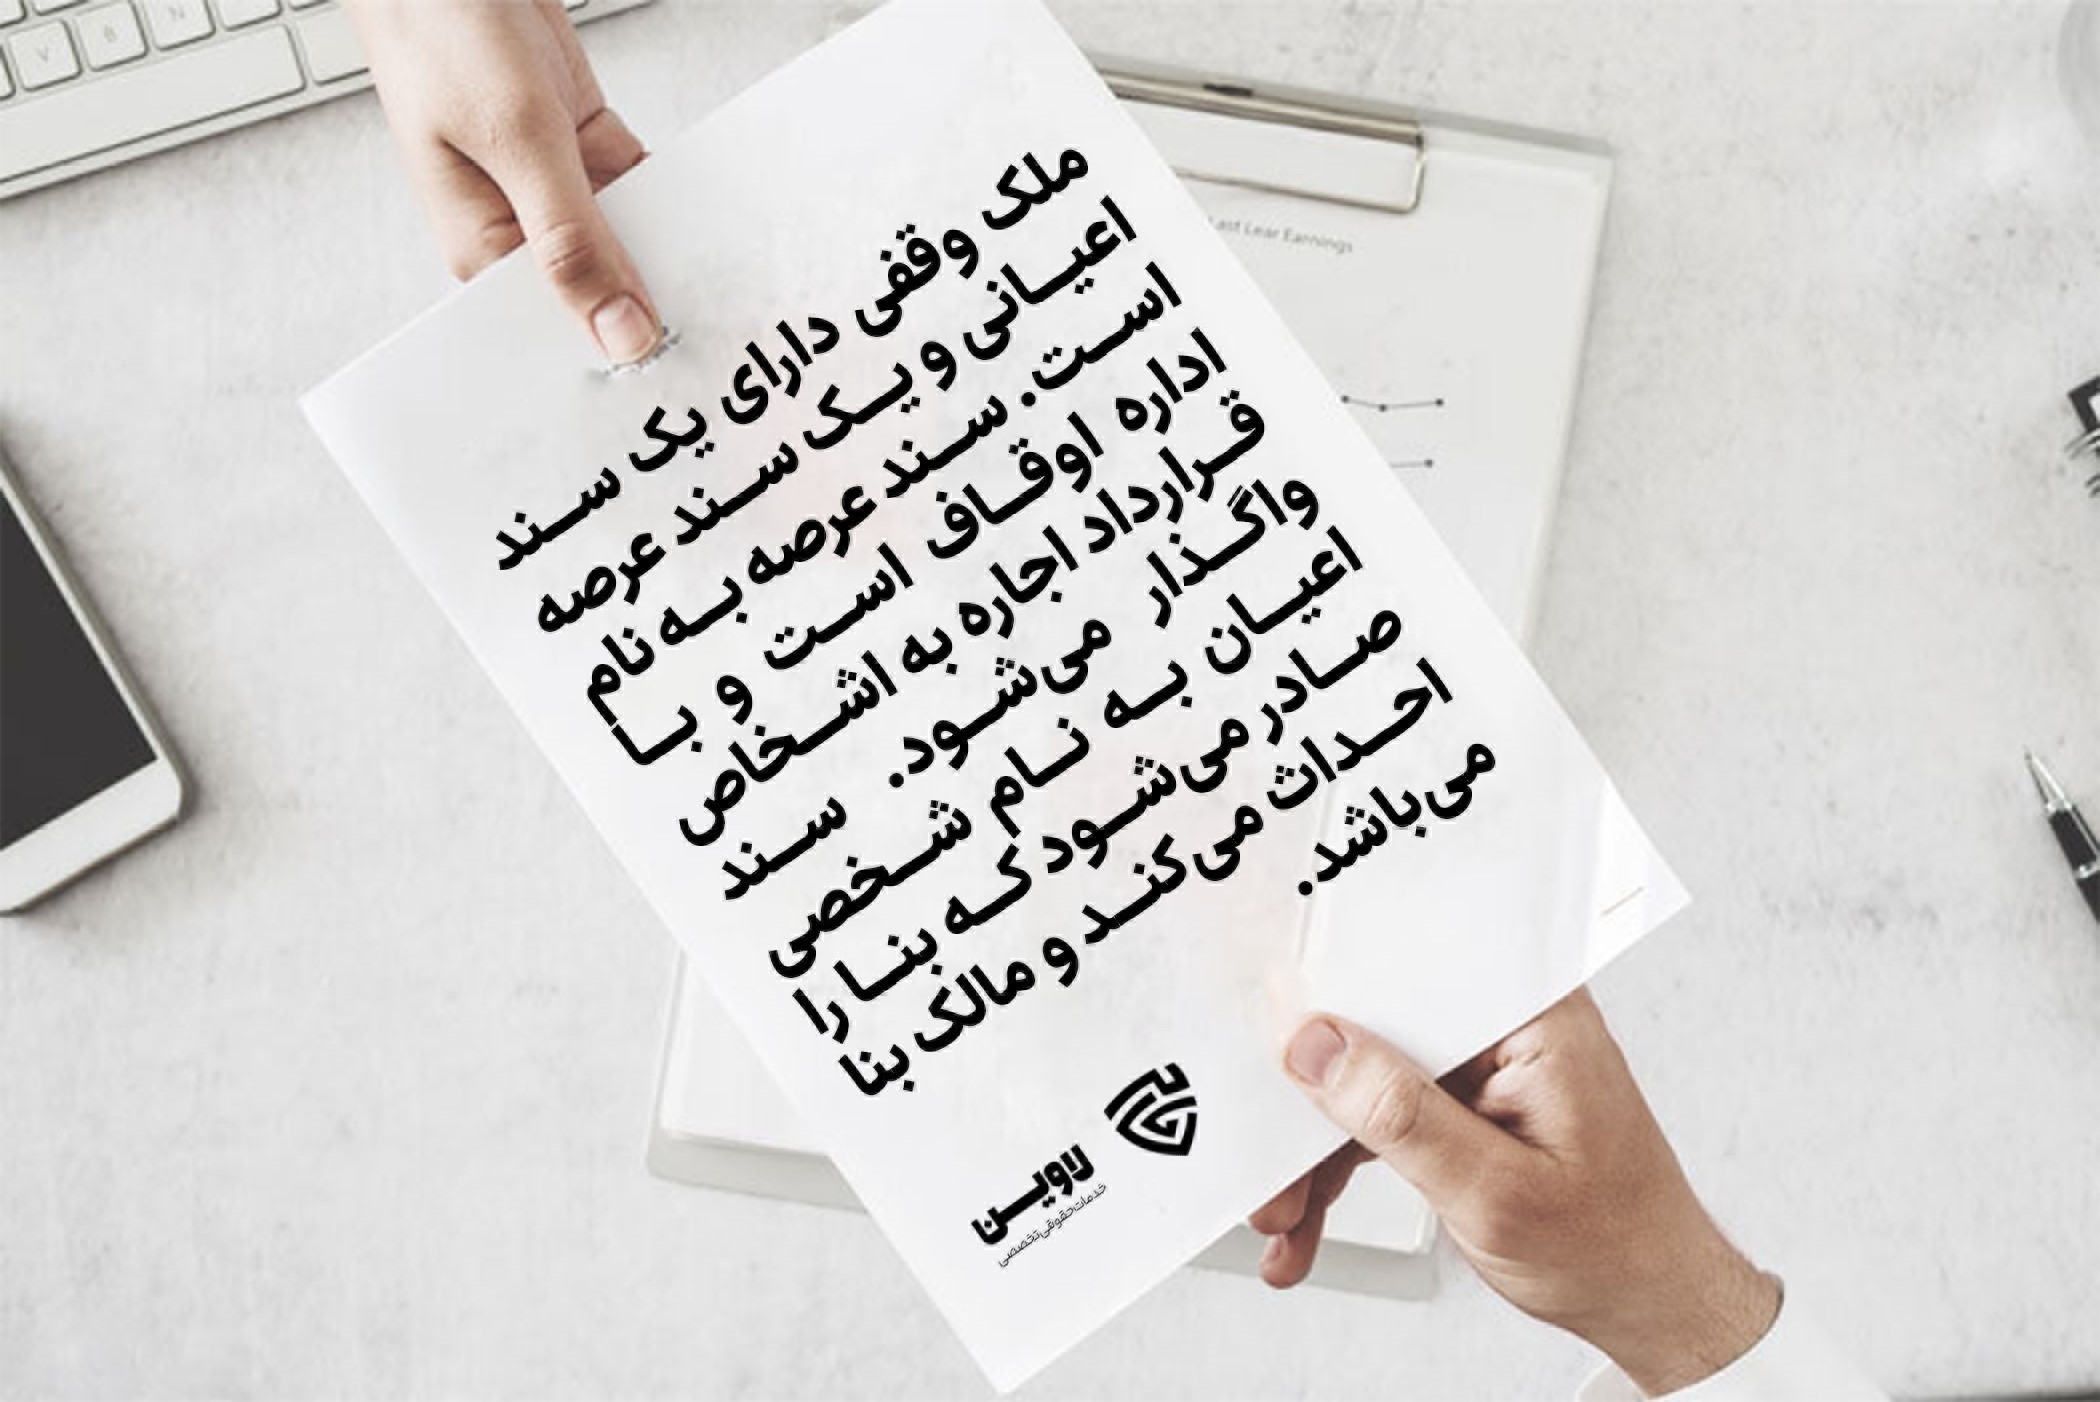 ملک وقفی دارای یک سند
اعیانی و یک سند عرصه
است. سند عرصه به نام
اداره اوقاف است و با
قرارداد اجاره به اشخاص
واگذار می‌شود. سند
اعیان به نام شخصی
صادر می‌شود که بنا را
احداث می‌کند و مالک بنا
می‌باشد.
لاوین
خدمات حقوقی تخصصی
Last Lear Earnings
V
B
N